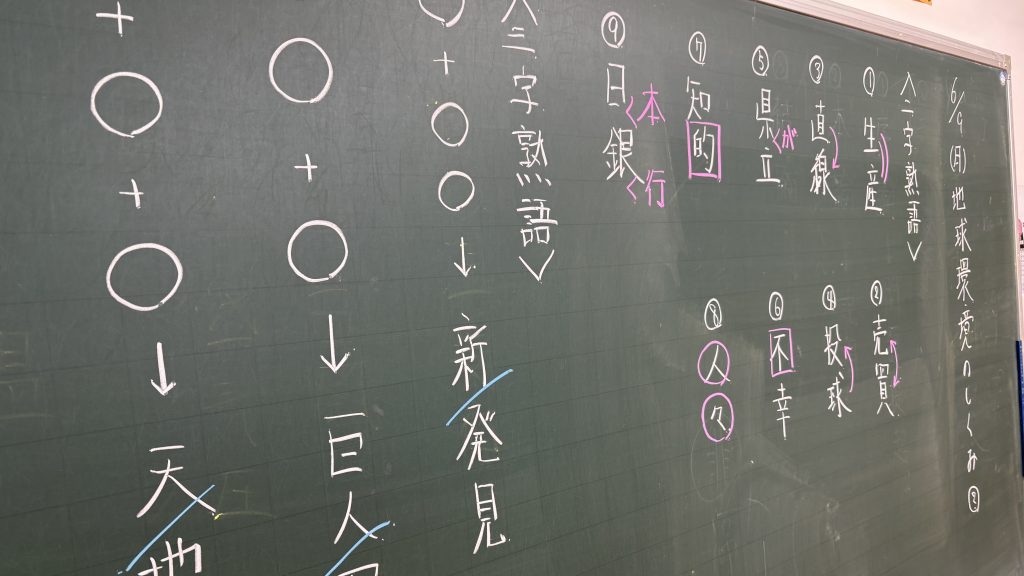 6/9(月)地球環境のしくみ②
<二字熟語>
①生産
②売買
③直線
④投球
⑤県立
が
⑥不幸
⑦知的
⑧人々
⑨日銀
本
行
<三字熟語>
○+○○→新発見
○+○→巨人
+○+○→天地